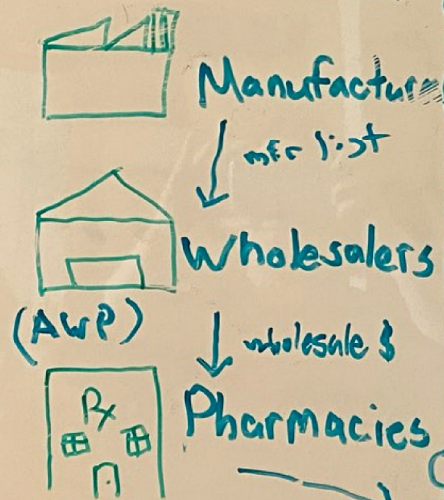 Manufacture
mfr list
Wholesalers
(AWP)
wholesale $
Rx
Pharmacies